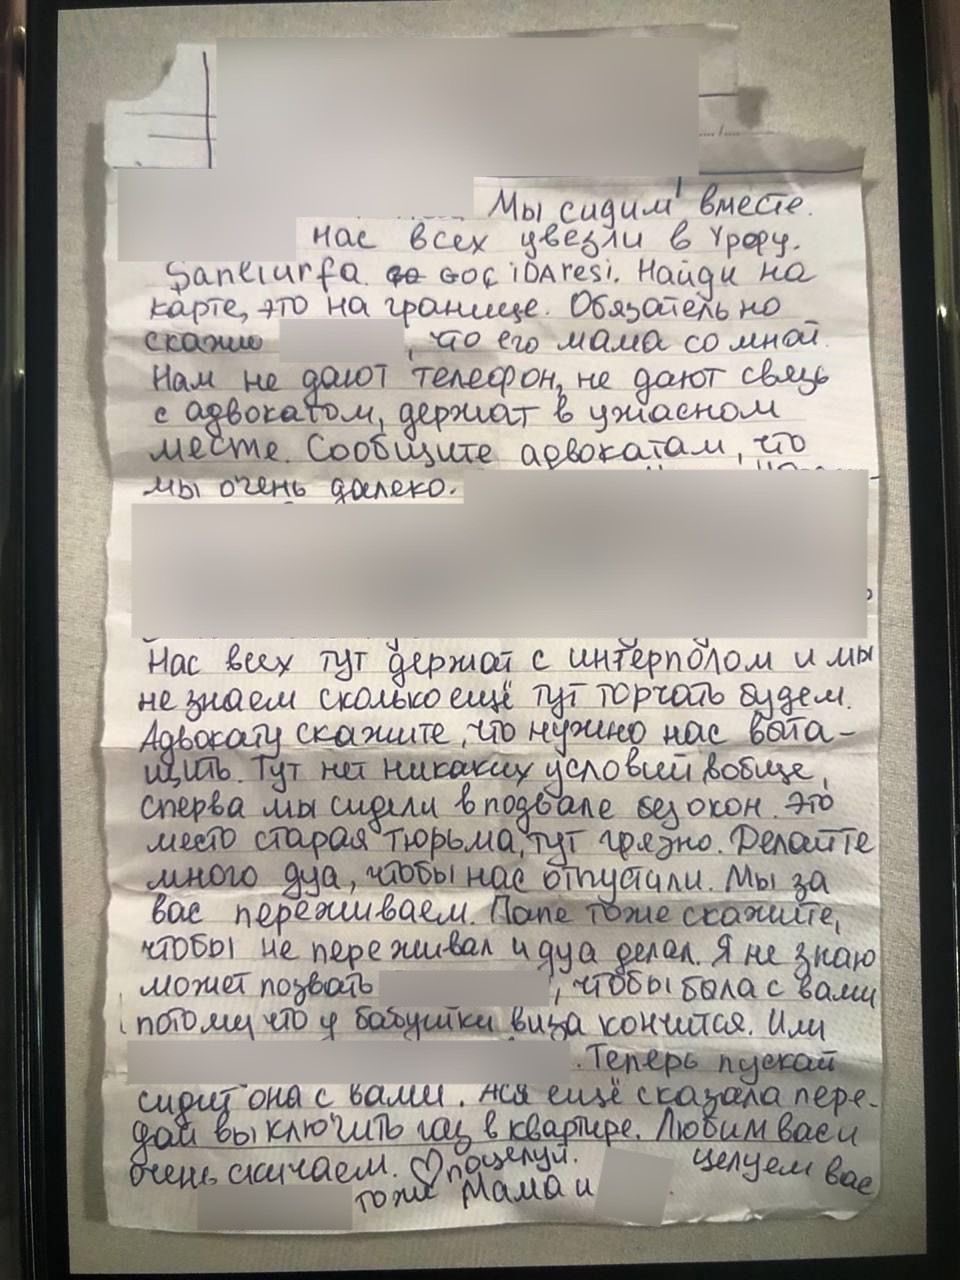 Мы сидим вместе.
нас всех увезли в Урфу.
Şanlıurfa. Göç iDAresi. Найди на
карте, это на границе. Обязательно
скажи , что его мама со мной.
Нам не дают телефон, не дают связь
с адвокатом, держат в ужасном
месте. Сообщите адвокатам, что
мы очень далеко.
Нас всех тут держат с интерполом и мы
не знаем сколько ещё тут торчать будем.
Адвокату скажите, что нужно нас выта-
щить. Тут нет никаких условий вобще,
сперва мы сидели в подвале без окон. Это
место старая тюрьма, тут грязно. Делайте
много дуа, чтобы нас отпустили. Мы за
вас переживаем. Папе тоже скажите,
чтобы не переживал и дуа делал. Я не знаю
может позвать , чтобы была с вами
потому что у бабушки виза кончится. Или
. Теперь пускай
сидит она с вами. Ася ещё сказала пере-
дай выключить газ в квартире. Любим вас и
очень скучаем. поцелуй. целуем вас
тоже Мама и